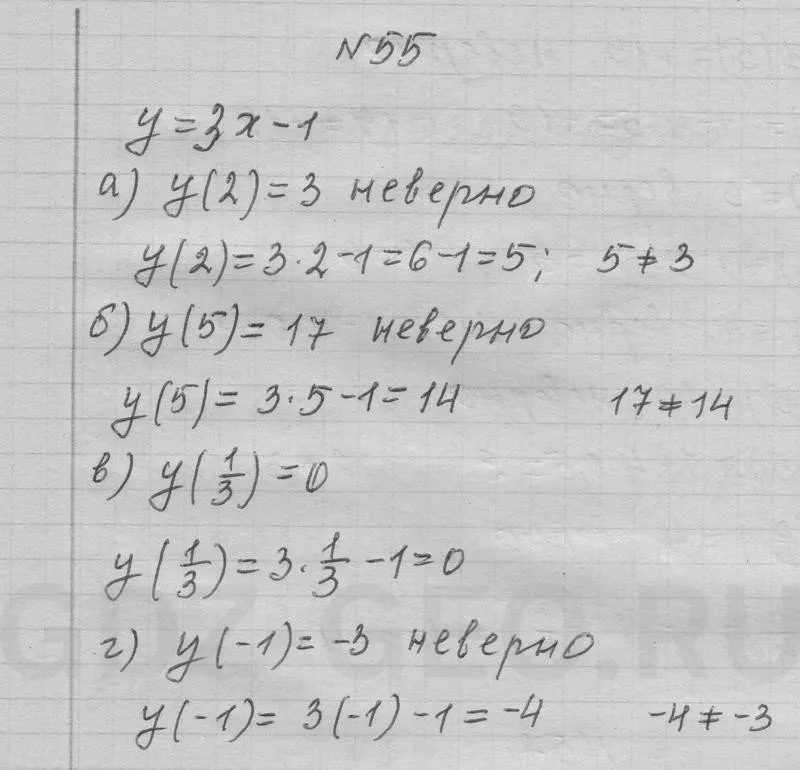 N55
y=3x-1
а) y(2)=3 неверно
y(2)=3·2-1=6-1=5; 5≠3
б) y(5)=17 неверно
y(5)=3·5-1=14 17≠14
в) y(1/3)=0
y(1/3)=3·1/3-1=0
GDZ-GEO.RU
г) y(-1)=-3 неверно
y(-1)=3(-1)-1=-4 -4≠-3